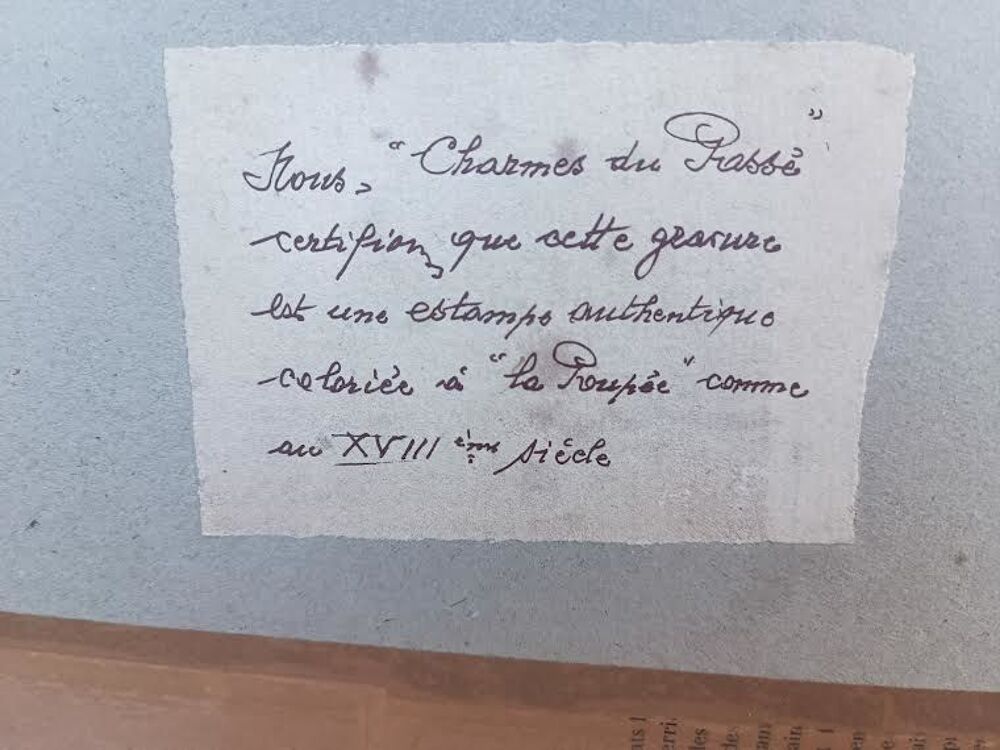 Nous, "Charmes du Passé"
certifions que cette gravure
est une estampe authentique
coloriée à "la Poupée" comme
au XVIII ème siècle
nts 1
erri.
les
des